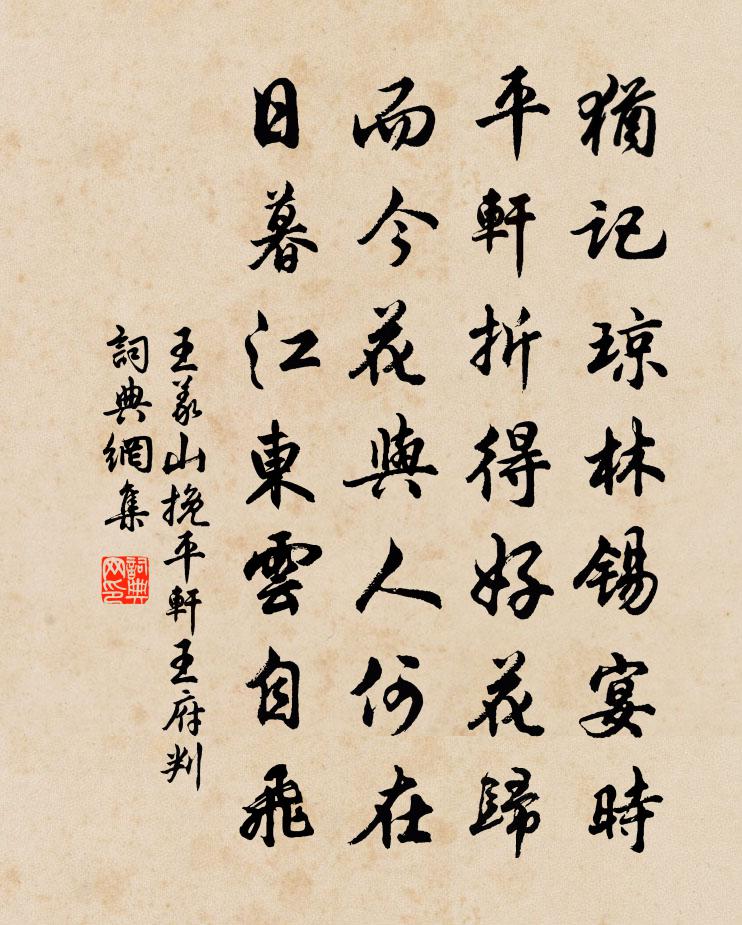 猶記琼林錫宴時
平軒折得好花歸
而今花與人何在
日暮江東雲自飛
王義山挽平軒王府判
詞典網集
詞典网印